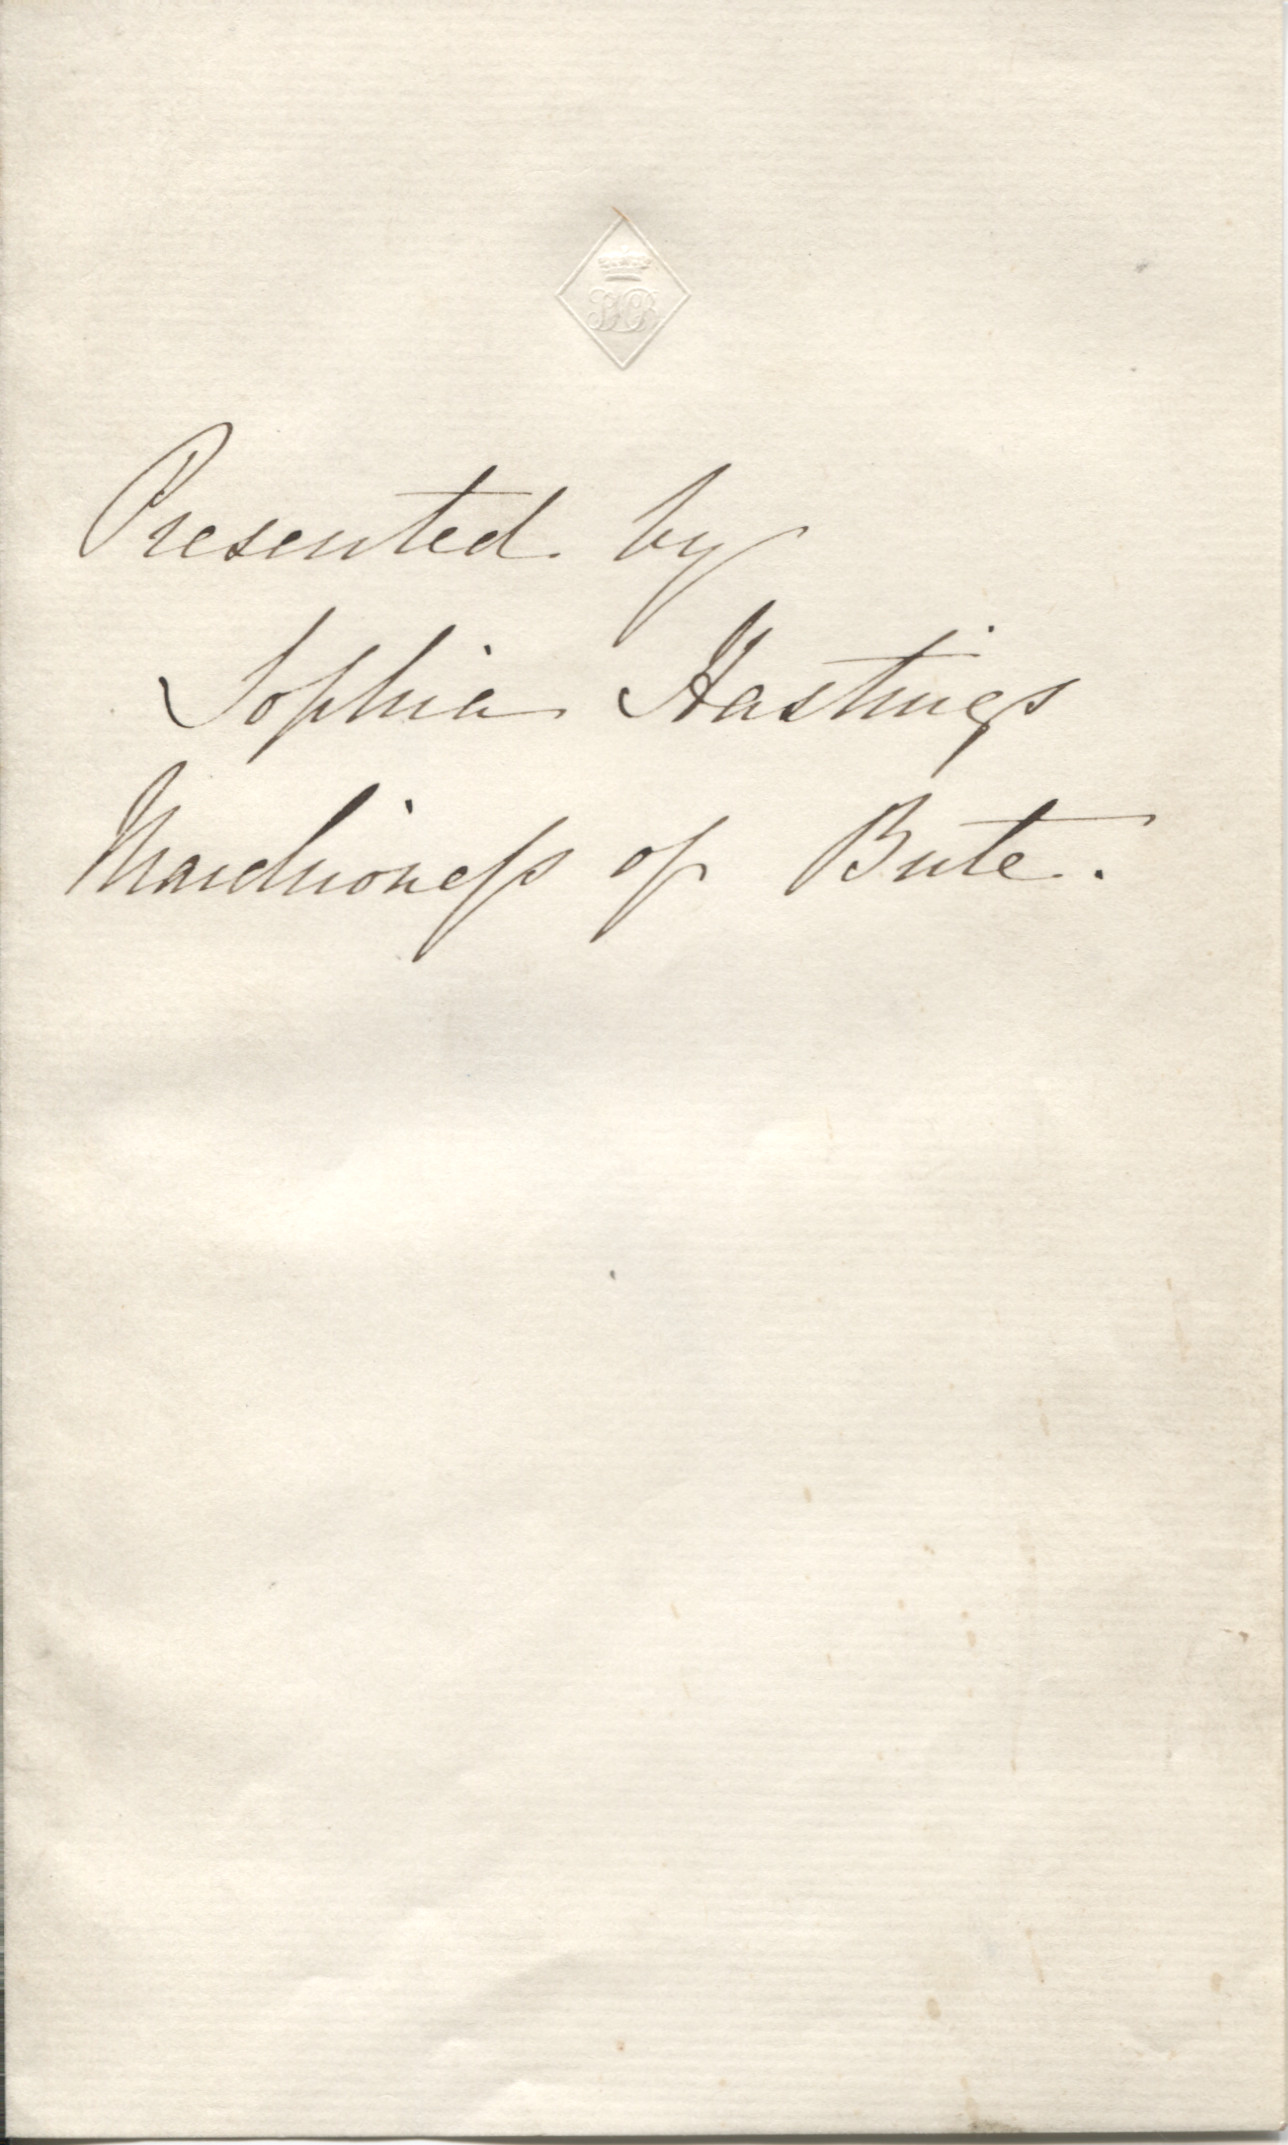 Presented by
Sophia Hastings
Marchioneſs of Bute.